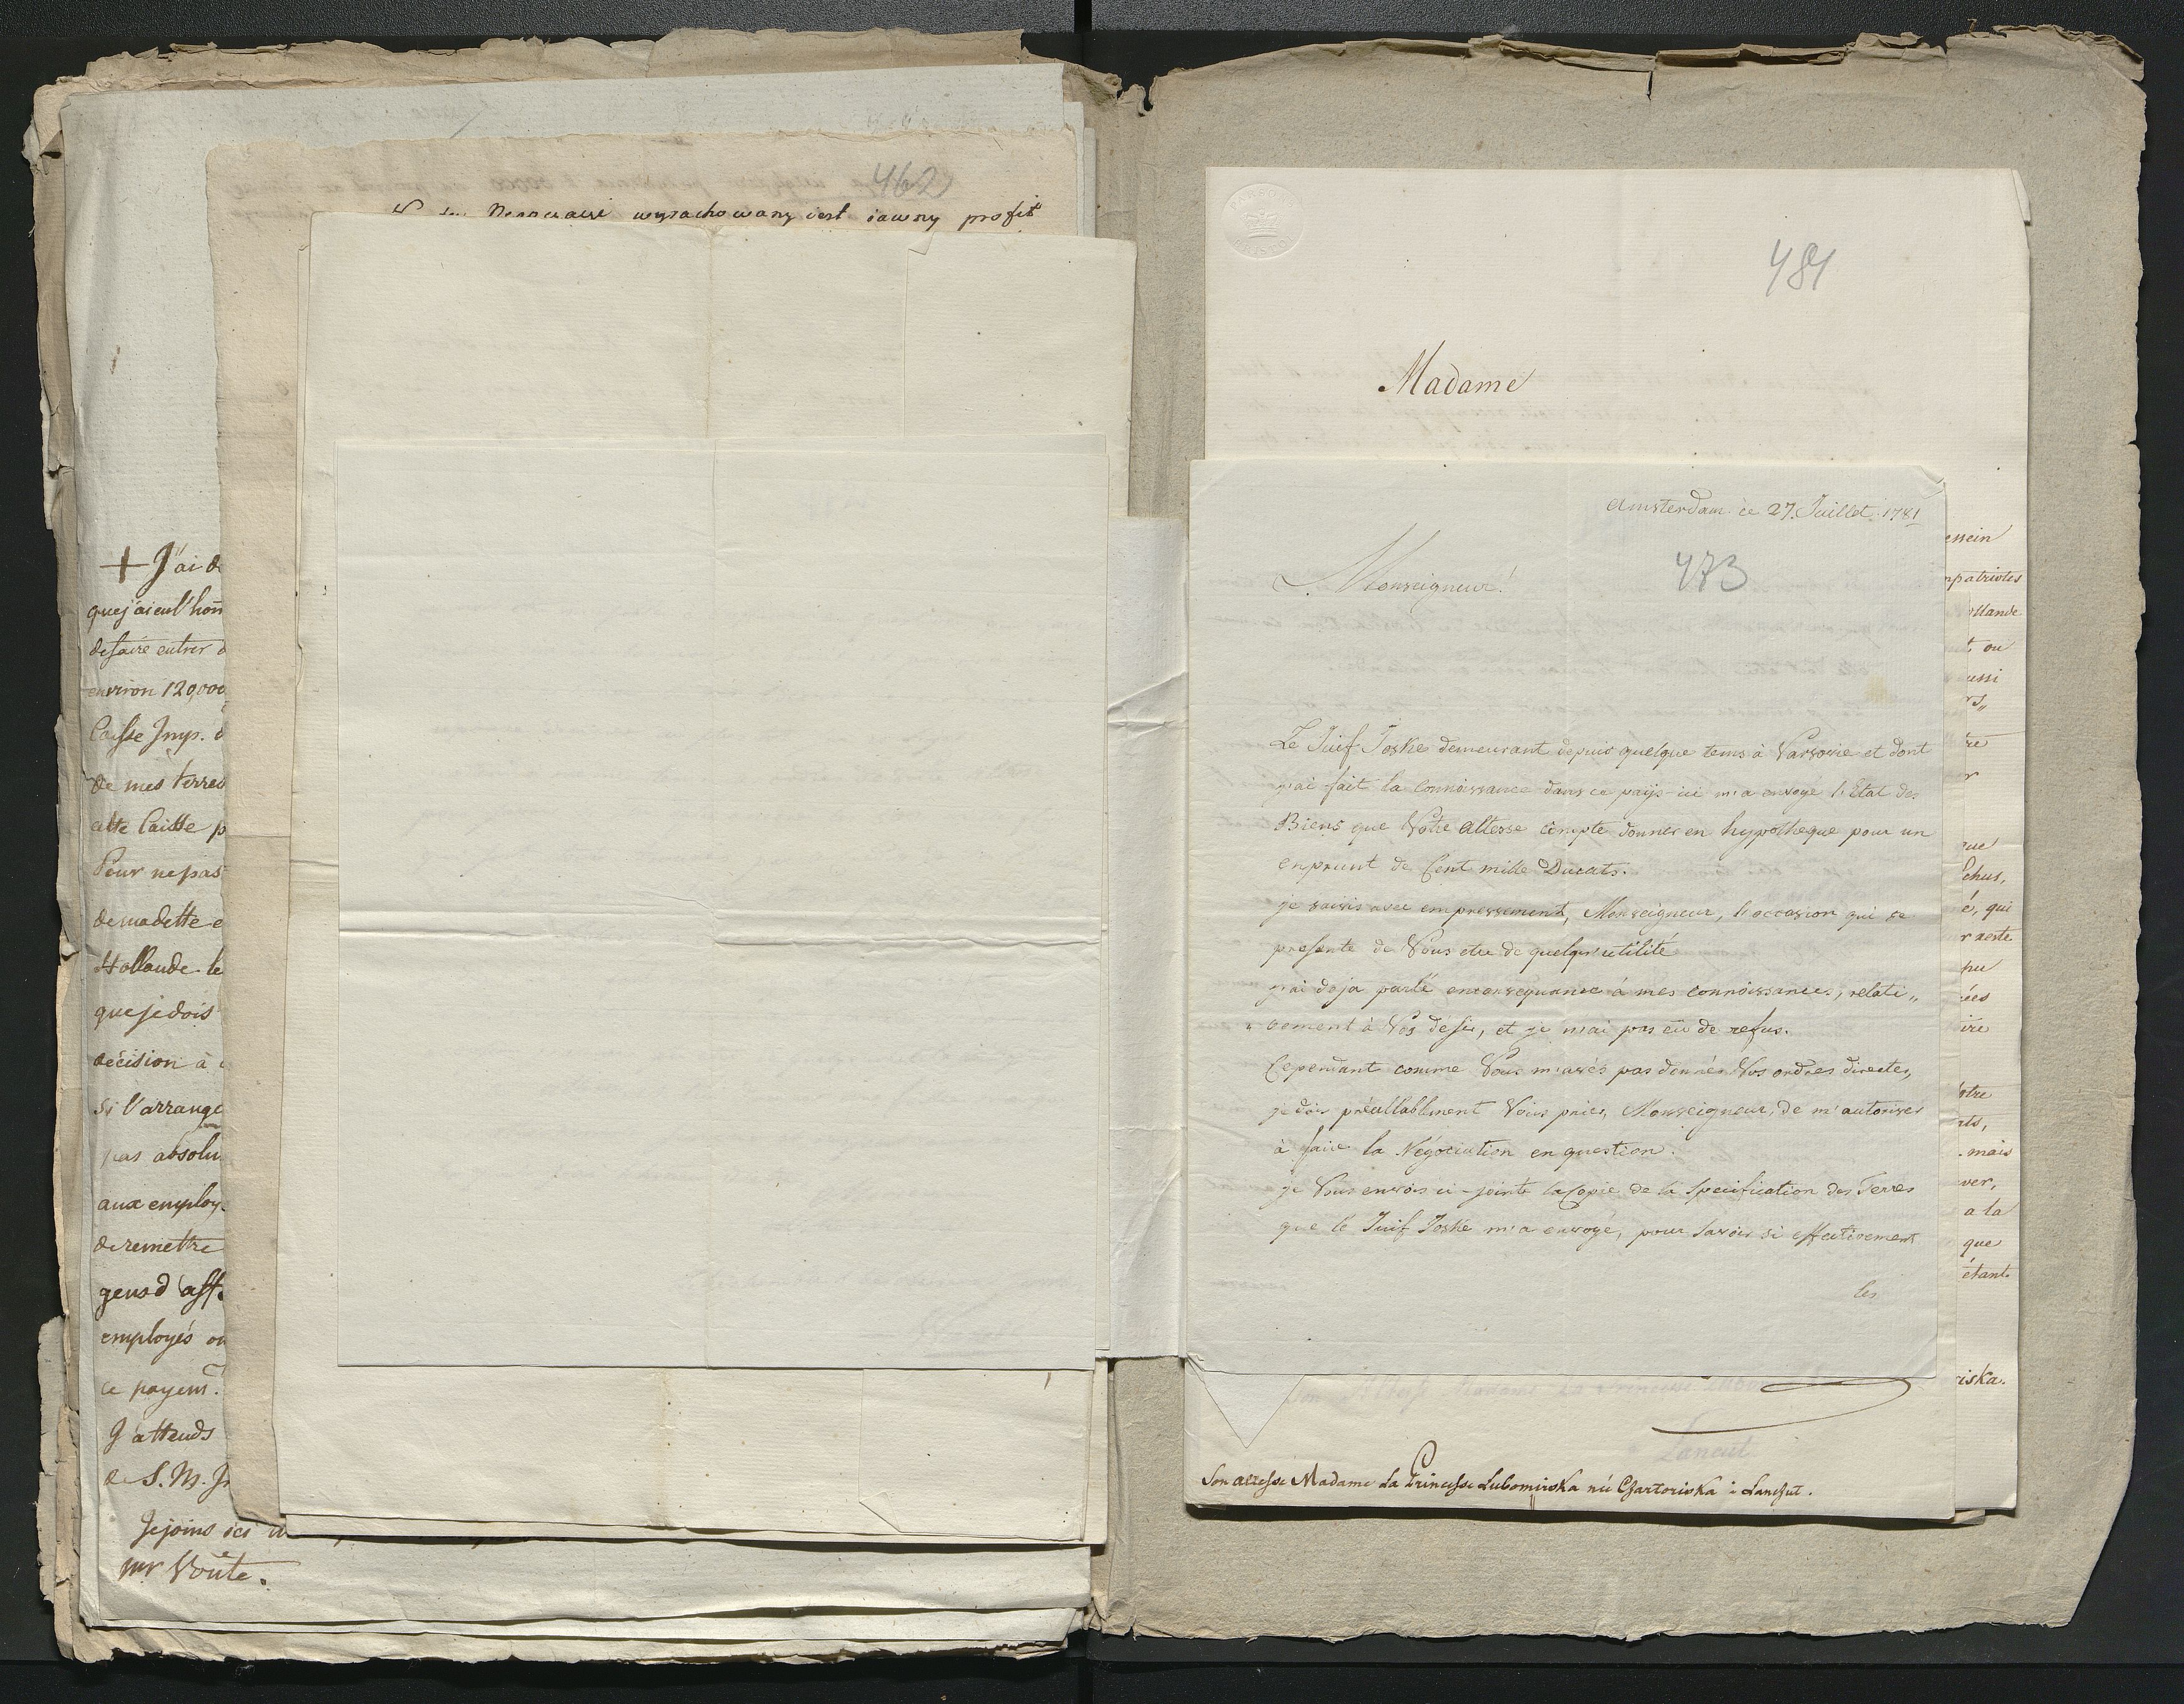 462
wyrachowany iest iawny profit
+ J'ai d
que j'ai eu l'hon
de faire entrer d
environ 120,000
Caisse Imp. d
de mes terres
cette Caisse p
Pour ne pas
de ma dette e
Hollande le
que je dois
décision à
si l'arrange
pas absolu
aux employ
de remettre
gens d'aff.
employés ou
ce payem.t
J'attends
de S. M. J
Je joins ici
mr Voûte.
484
Madame
Amsterdam ce 27. Juillet. 1781
473
Monseigneur!
Le Juif Joske demeurant depuis quelque tems à Varsovie et dont
j'ai fait la connoissance dans ce païs-ici m'a envoyé l'Etat des
Biens que Votre Altesse compte donner en hypotheque pour un
enprunt de Cent mille Ducats.
je saisis avec empressement, Monseigneur, l'occasion qui se
presente de Vous etre de quelqu'utilité
j'ai deja parlé enconsequance à mes connoissances, relati„
„vement à Vos desir, et je n'ai pas eü de refus.
Cependant comme Vous m'avés pas donnés Vos ordres directes,
je dois préallablment Vous prier, Monseigneur, de m'autoriser
à faire la Négociation en question.
je Vous envois ci-jointe la Copie de la Specification des Terres
que le Juif Joske m'a envoyé, pour savoir si effectivement
les
essein
mpatriotes
ollande
t, ou
ussi
rs„
tre
r
que
Echus,
é, qui
r reste
pu
ées
ire
otre
ats,
mais
ver,
a la
que
étant
riska.
Lancut
Son altesse Madame La Princesse Lubomirska né Czartoriska à Lanzut.